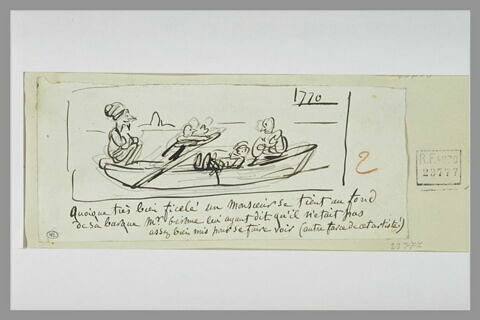 1770
2
R.F.4870
23777
Quoique très bien ficelé un Monsieur se tient au fond
de sa barque Mr berme lui ayant dit qu'il n'était pas
assez bien mis pour se faire voir (autre farce de cet artiste)
23777